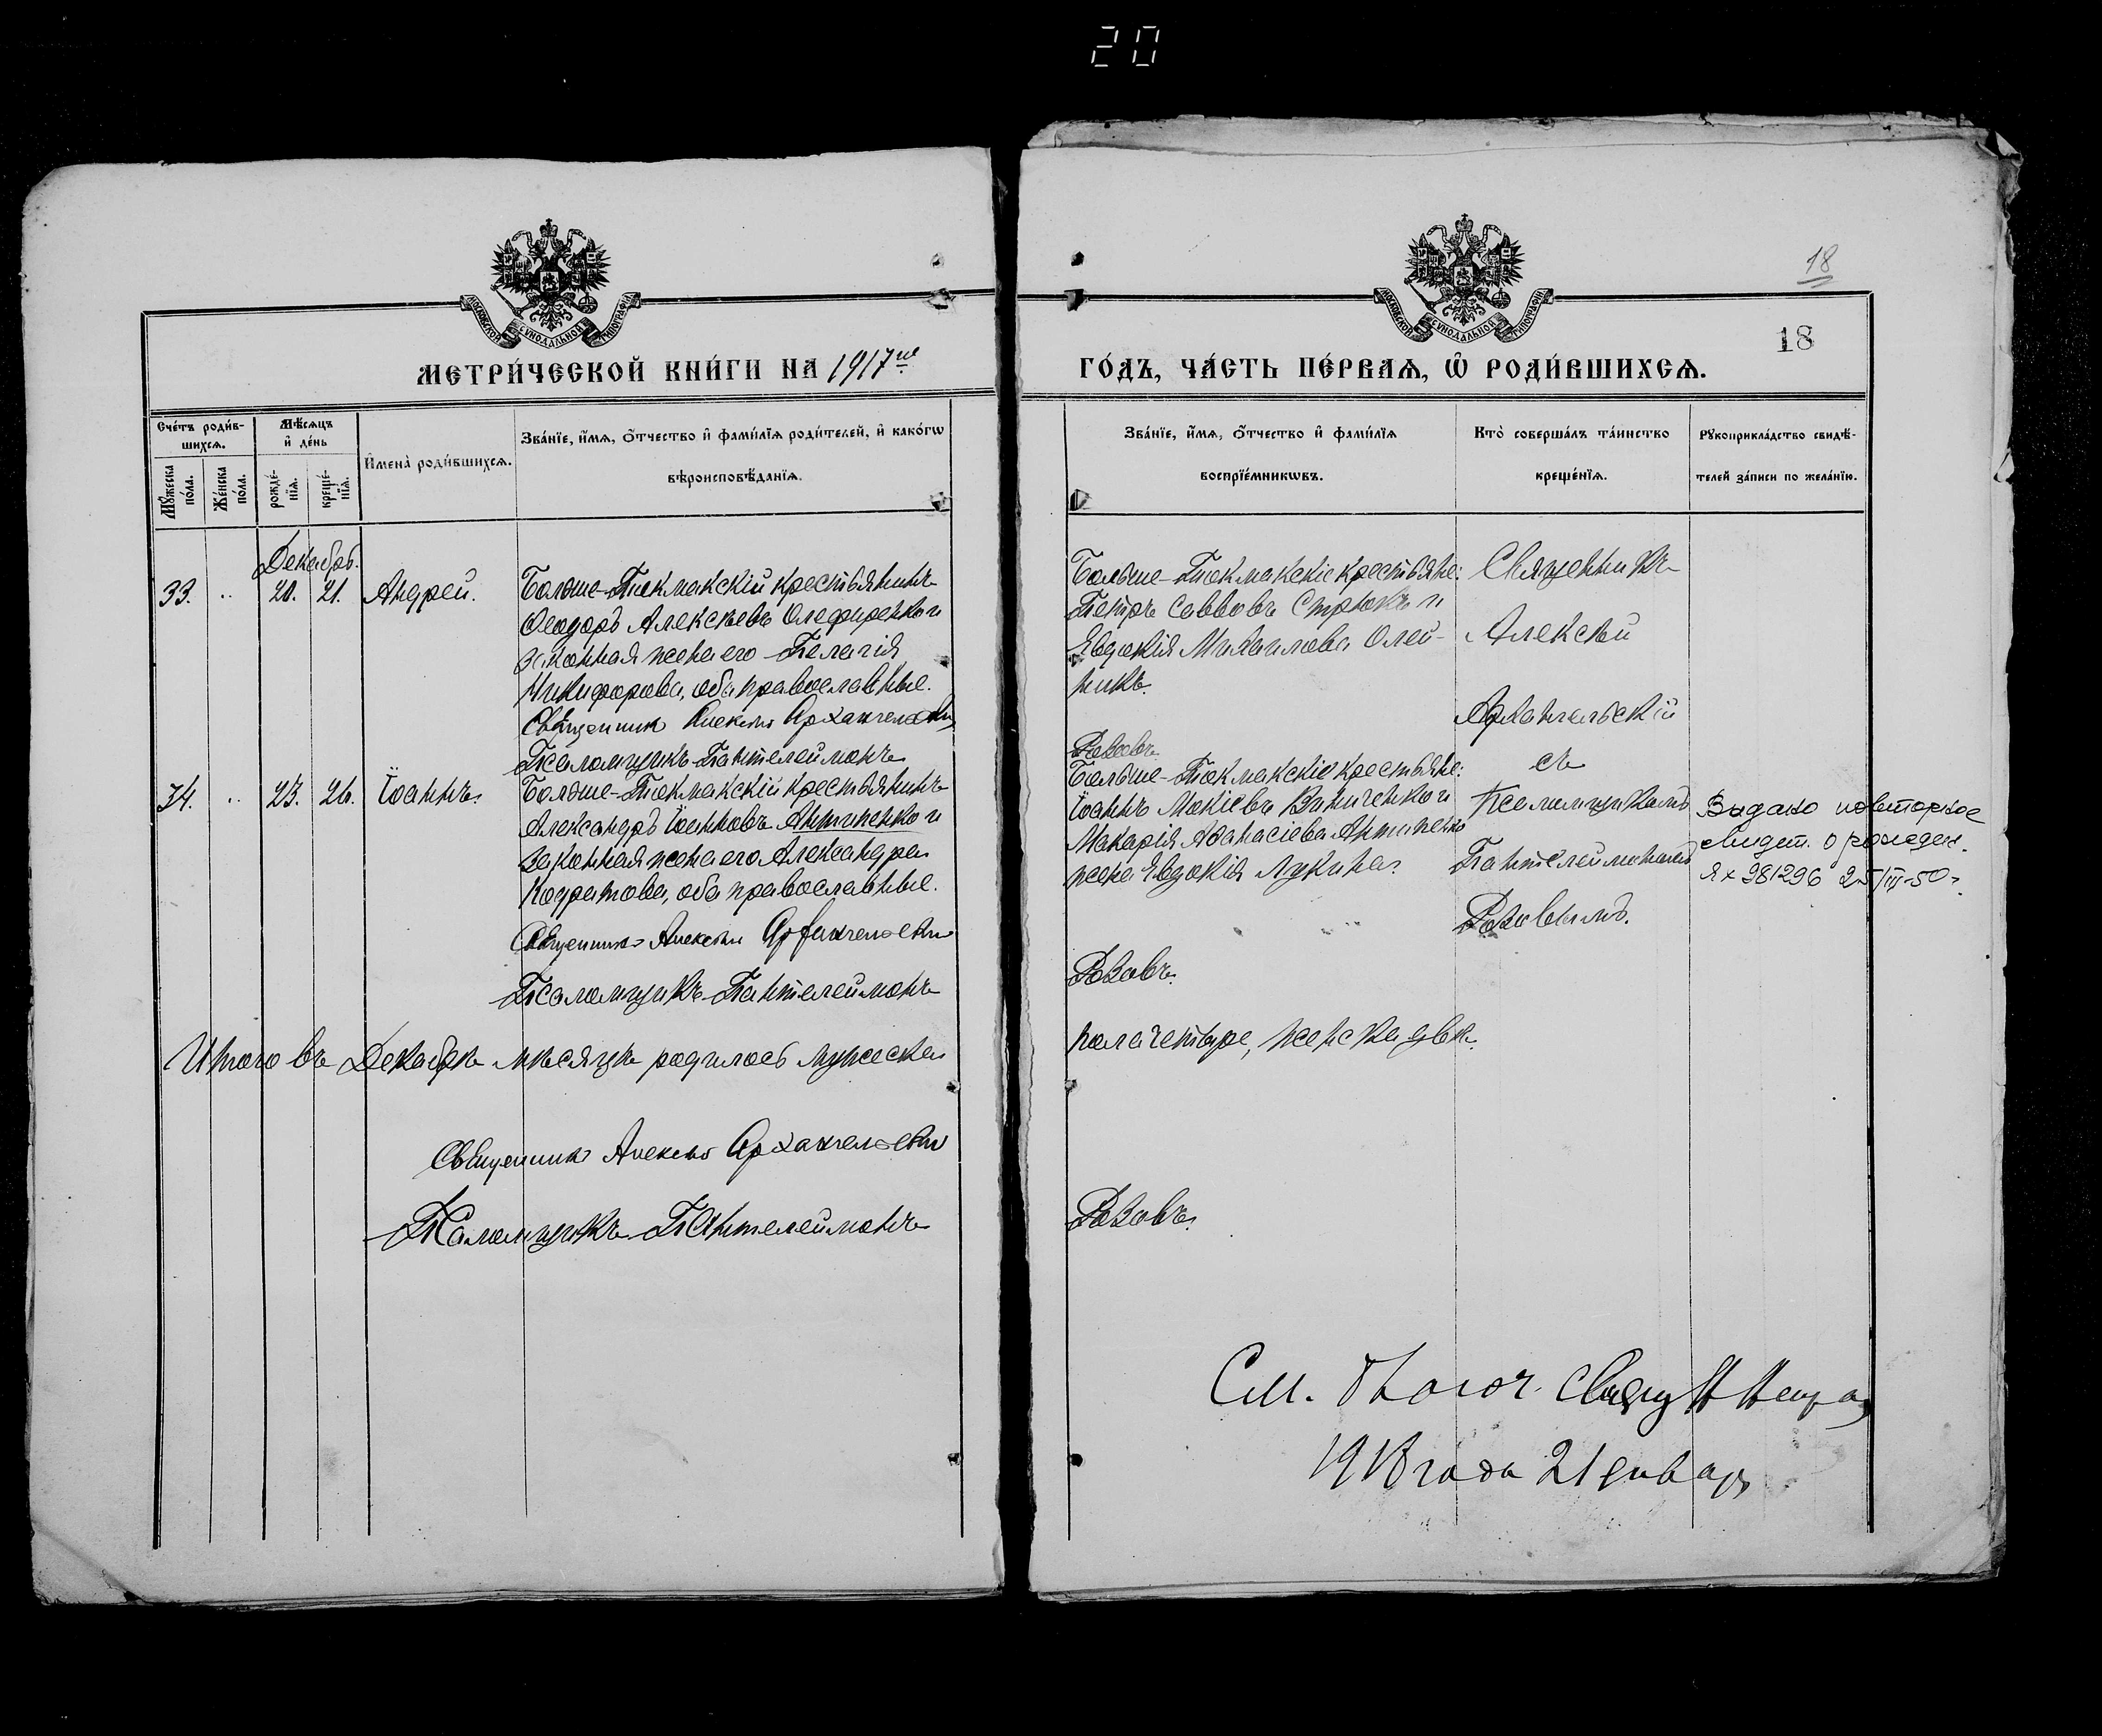 20
18
18
МОСКОВСКОЙ СУНОДАЛЬНОЙ ТИПОГРАФІИ
МОСКОВСКОЙ СУНОДАЛЬНОЙ ТИПОГРАФІИ
МЕТРИ́ЧЕСКОЙ КНИ́ГИ НА 1917й
ГО́ДЪ, ЧА́СТЬ ПЕ́РВАѦ, Ѡ҆ РОДИ́ВШИХСѦ.
Сче́тъ роди́в-
шихсѧ.
Мꙋ́жеска по́ла.
Же́нска по́ла.
Мѣ́сѧцъ
и҆ де́нь
рожде́-
нїѧ.
креще́-
нїѧ.
И҆мена̀ роди́вшихсѧ.
Зва́нїе, и҆́мѧ, ѻ҆́тчество и҆ фами́лїѧ роди́телей, и҆ како́гѡ
вѣроисповѣ́данїѧ.
Зва́нїе, и҆́мѧ, ѻ҆́тчество и҆ фами́лїѧ
воспрїе́мникѡвъ.
Кто̀ соверша́лъ та́инство
креще́нїѧ.
Рꙋкоприкла́дство свидѣ́-
телей за́писи по жела́нїю.
Декабрь.
33. ..
20. 21.
Андрей.
Больше-Токмакскій крестьянинъ
Ѳеодоръ Алексѣевъ Олефиренко и
законная жена его Пелагія
Никифорова, оба православные.
Священникъ Алексѣй Архангельскій
Псаломщикъ Пантелеймонъ
Больше-Токмакскіе крестьяне:
Петръ Саввовъ Стрюкъ и
Евдокія Михаилова Олей-
никъ.
Розовъ
Священникъ
Алексѣй
Архангельскій
съ
Псаломщикомъ
Пантелеймономъ
Розовымъ.
34. ..
23. 26.
Іоаннъ.
Больше-Токмакскій крестьянинъ
Александръ Іоанновъ Антипенко и
законная жена его Александра
Кодратова, оба православные.
Священникъ Алексѣй Архангельскій
Псаломщикъ Пантелеймонъ
Больше-Токмакскіе крестьяне:
Іоаннъ Мокіевъ Винниченко и
Макарія Аѳанасіева Антипенко
жена Евдокія Лукина.
Розовъ.
Выдано повторное
свидет. о рожден.
Ях 981296 25/III-50 г.
Итого въ Декабрѣ мѣсяцѣ родилось мужеска
пола четыре, женска двѣ.
Священникъ Алексѣй Архангельскій
Псаломщикъ Пантелеймонъ
Розовъ.
См. Благоч. Свящ.
1918 года 21 январ